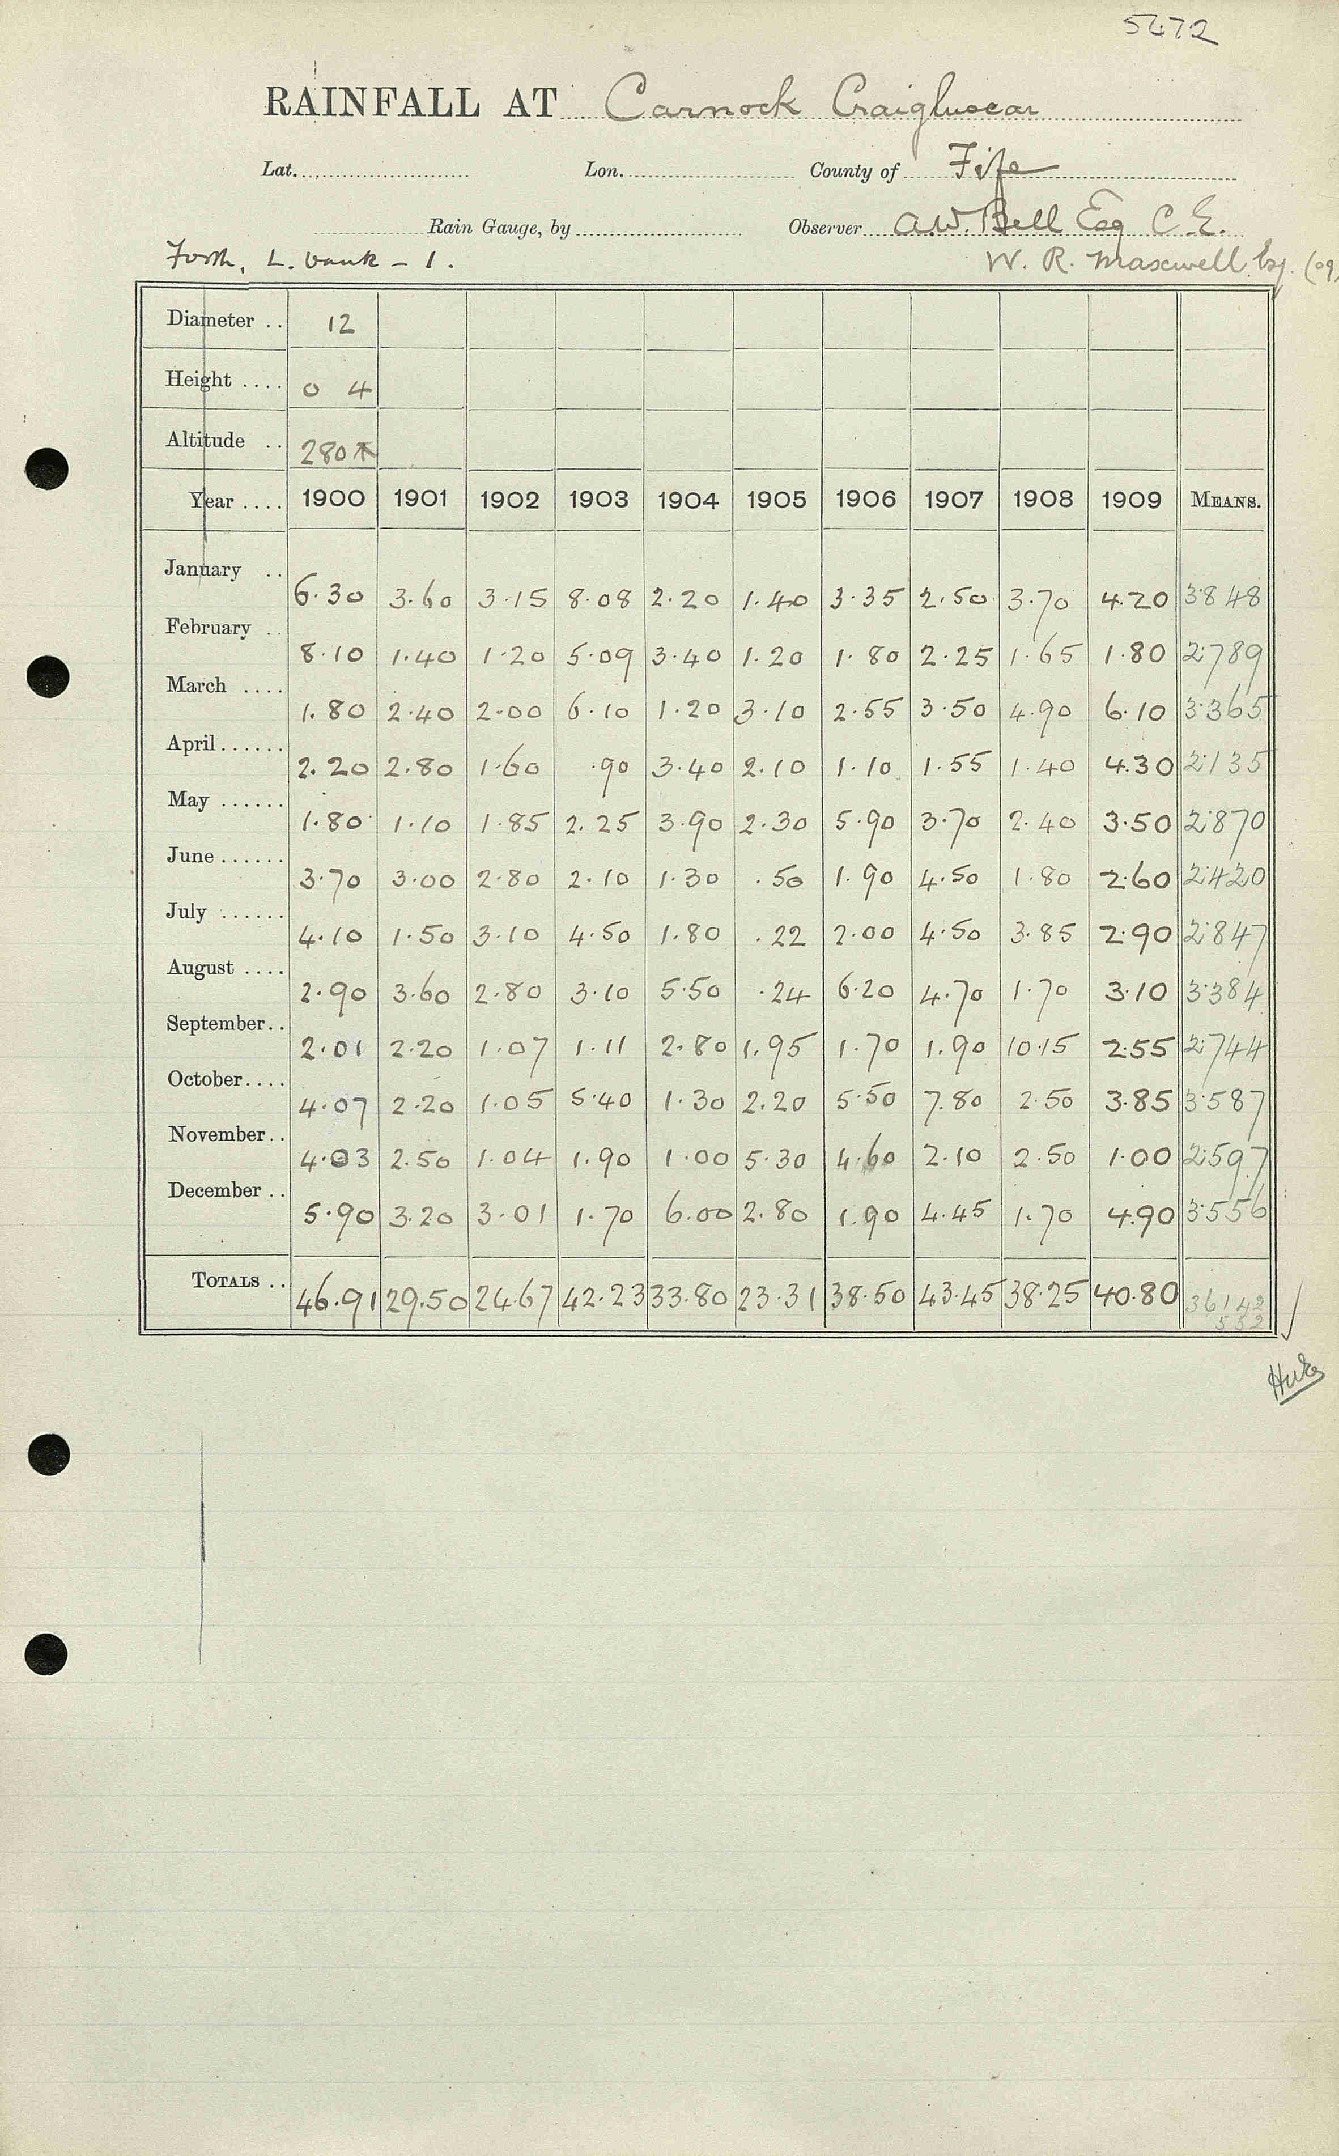 5672
RAINFALL AT Carnock Craigluscar
Lat. Lon. County of Fife
Rain Gauge, by Observer A.W. Bell Esq C.E.
Forth, L. bank - 1. W. R. Maxwell Esq. (09)
Diameter .. 12
Height .... 0 4
Altitude .. 280
Year .... 1900 1901 1902 1903 1904 1905 1906 1907 1908 1909 MEANS.
January .. 6.30 3.60 3.15 8.08 2.20 1.40 3.35 2.50 3.70 4.20 3.848
February .. 8.10 1.40 1.20 5.09 3.40 1.20 1.80 2.25 1.65 1.80 2.789
March .... 1.80 2.40 2.00 6.10 1.20 3.10 2.55 3.50 4.90 6.10 3.365
April ...... 2.20 2.80 1.60 .90 3.40 2.10 1.10 1.55 1.40 4.30 2.135
May ...... 1.80 1.10 1.85 2.25 3.90 2.30 5.90 3.70 2.40 3.50 2.870
June ...... 3.70 3.00 2.80 2.10 1.30 .50 1.90 4.50 1.80 2.60 2.420
July ...... 4.10 1.50 3.10 4.50 1.80 .22 2.00 4.50 3.85 2.90 2.847
August .... 2.90 3.60 2.80 3.10 5.50 .24 6.20 4.70 1.70 3.10 3.384
September.. 2.01 2.20 1.07 1.11 2.80 1.95 1.70 1.90 10.15 2.55 2.744
October.... 4.07 2.20 1.05 5.40 1.30 2.20 5.50 7.80 2.50 3.85 3.587
November.. 4.03 2.50 1.04 1.90 1.00 5.30 4.60 2.10 2.50 1.00 2.597
December .. 5.90 3.20 3.01 1.70 6.00 2.80 1.90 4.45 1.70 4.90 3.556
TOTALS .. 46.91 29.50 24.67 42.23 33.80 23.31 38.50 43.45 38.25 40.80 36.142
552